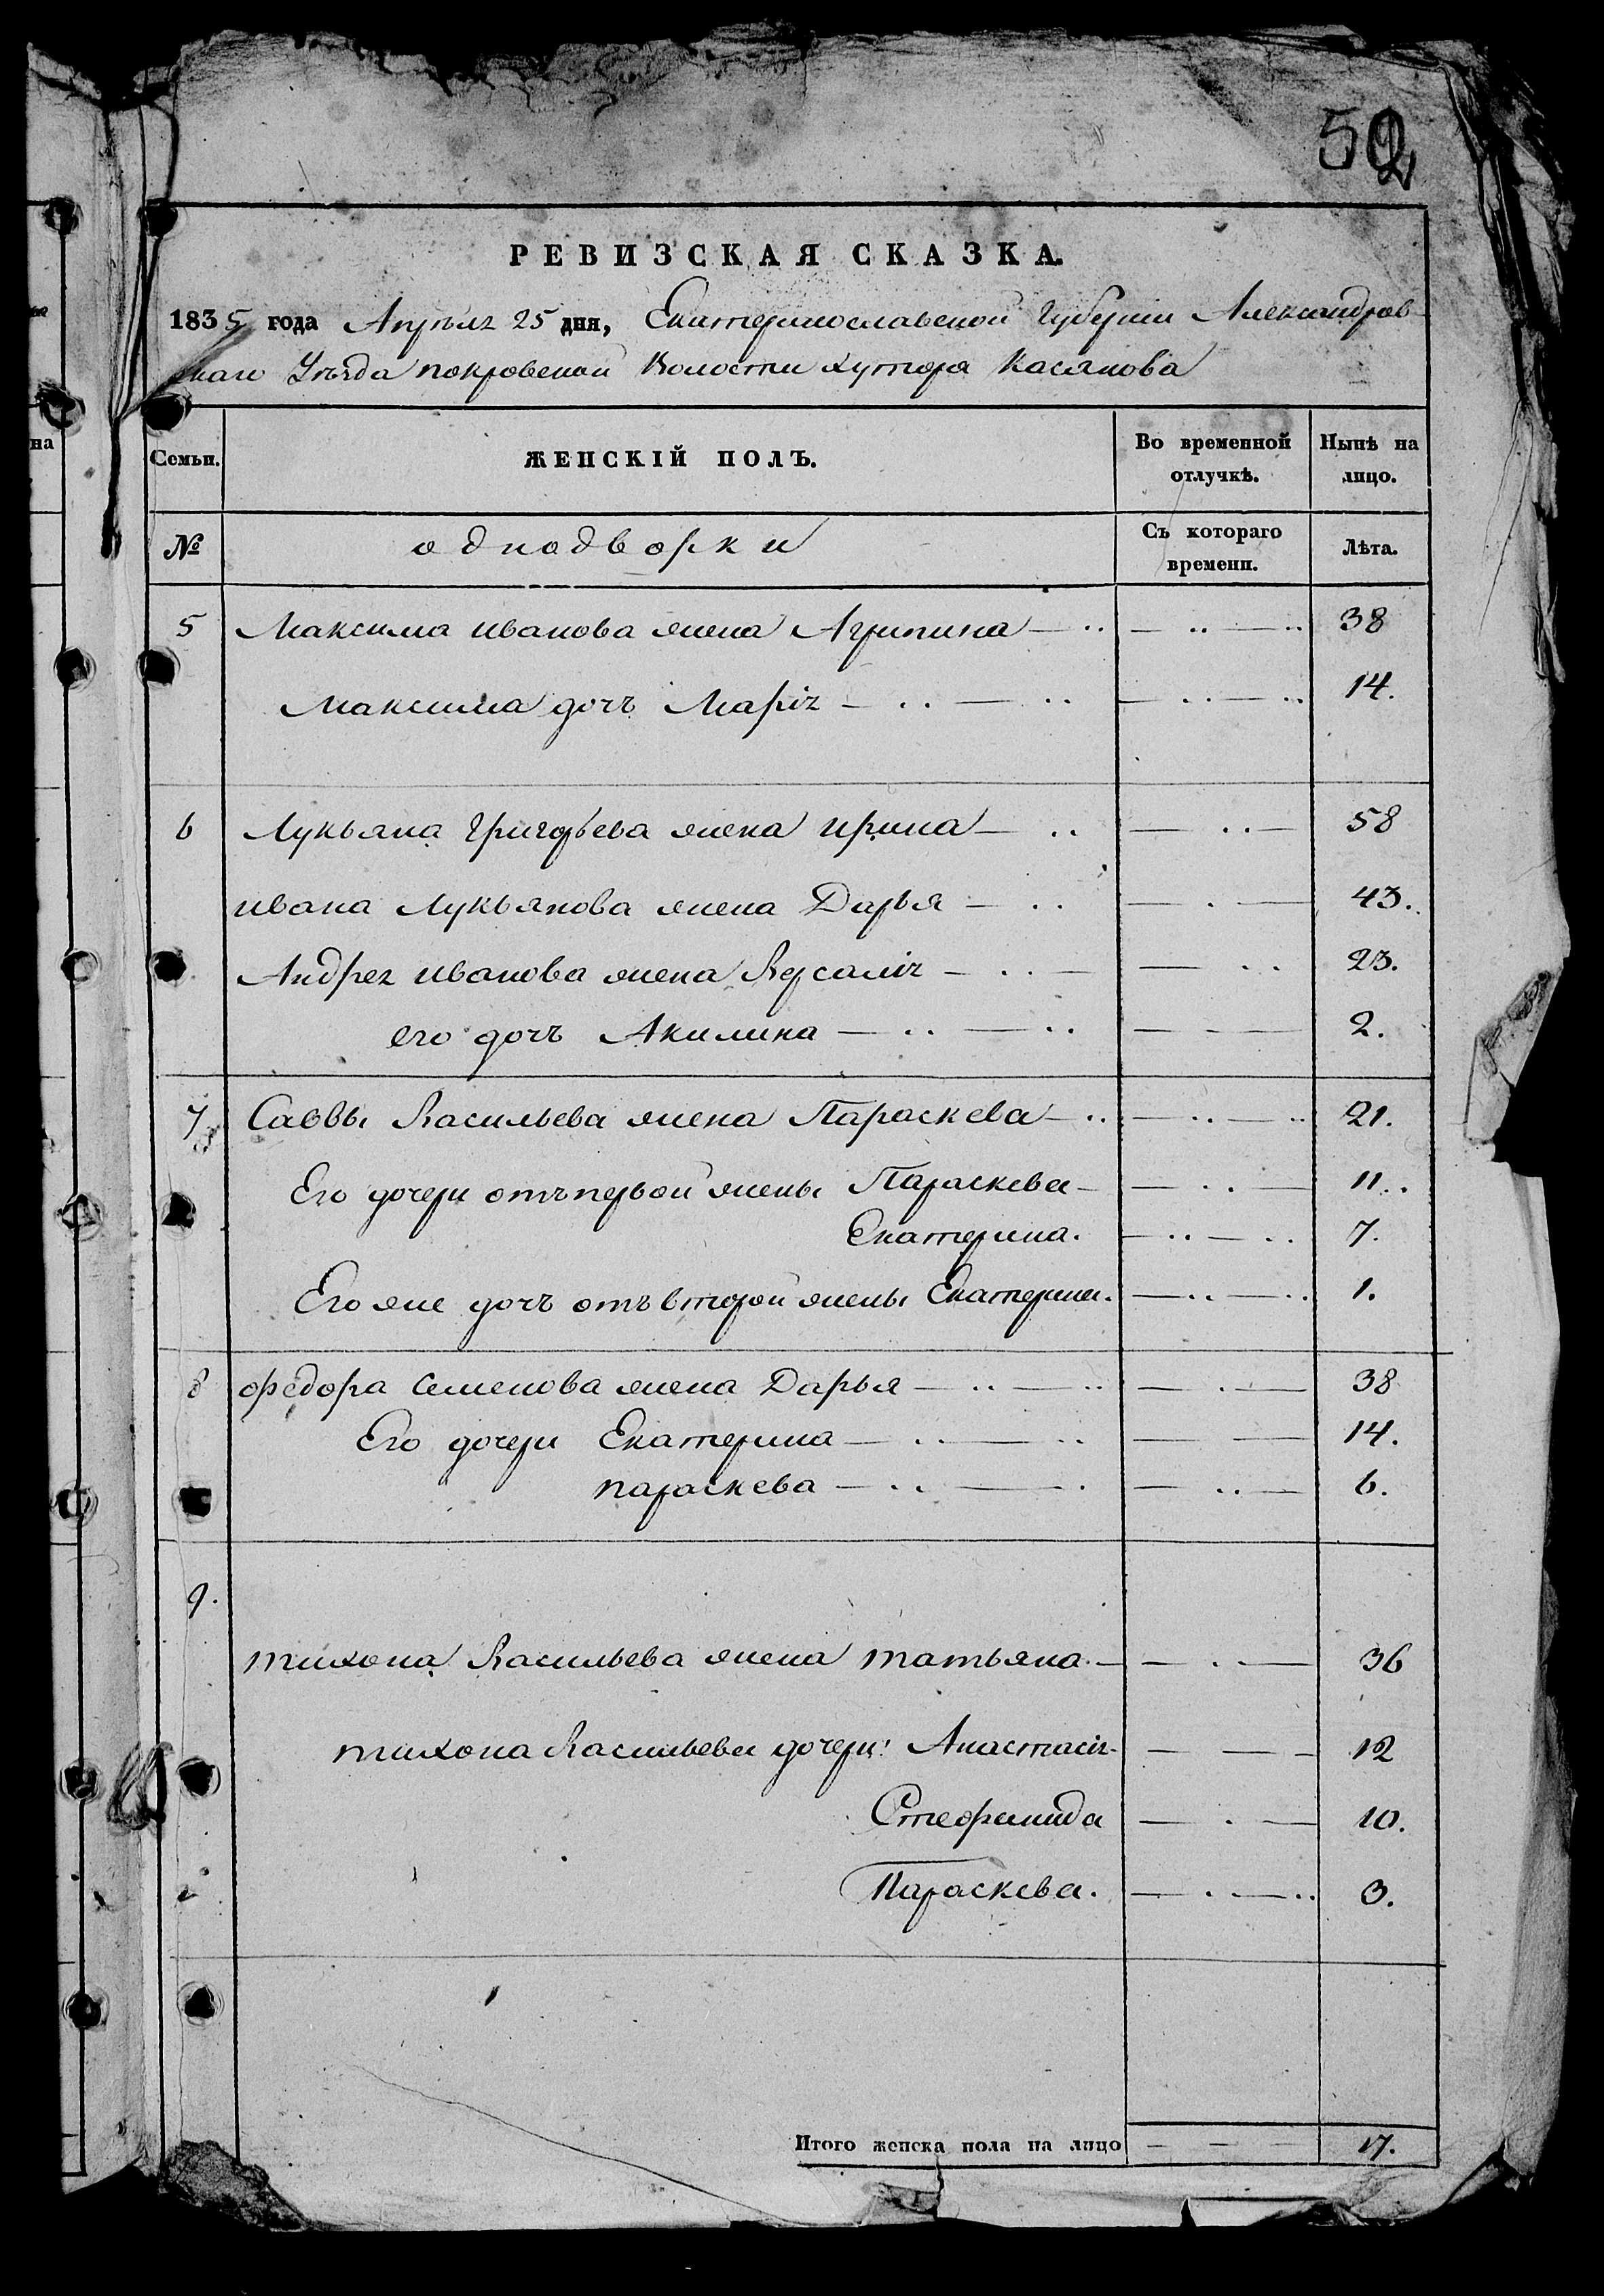 52
РЕВИЗСКАЯ СКАЗКА.
1835 года Апрѣля 25 дня, Екатеринославской Губерніи Александров-
скаго Уѣзда покровской Волости хутора Касянова
на
Семьи. ЖЕНСКІЙ ПОЛЪ. Во временной отлучкѣ. Нынѣ на лицо.
№ однодворки Съ котораго времени. Лѣта.
5 Максима иванова жена Агрипина — .. — .. — .. 38
Максима дочъ Марія — .. — .. — .. — .. 14.
6 Лукьяна Григорьева жена ирина — .. — .. — 58
ивана Лукьянова жена Дарья — .. — . — 43.
Андрея иванова жена Версалія — .. — — .. 23.
его дочъ Акилина — .. — .. — . — 2.
7 Саввы Васильева жена Параскева — .. — .. — .. 21.
Его дочери отъ первой жены Параскева — — .. — 11.
Екатерина. — .. — .. 7.
Его же дочъ отъ второй жены Екатерина. — .. — .. 1.
8 федора Семенова жена Дарья — .. — .. — . — 38
Его дочери Екатерина — .. — .. — — 14.
параскева — .. — . — .. — 6.
9. тихона Васильева жена татьяна. — — . — 36
тихона Васильева дочери: Анастасія. — — — 12
Стефанида — . — 10.
Параскева. — . — .. 3.
Итого женска пола на лицо — — — 17.